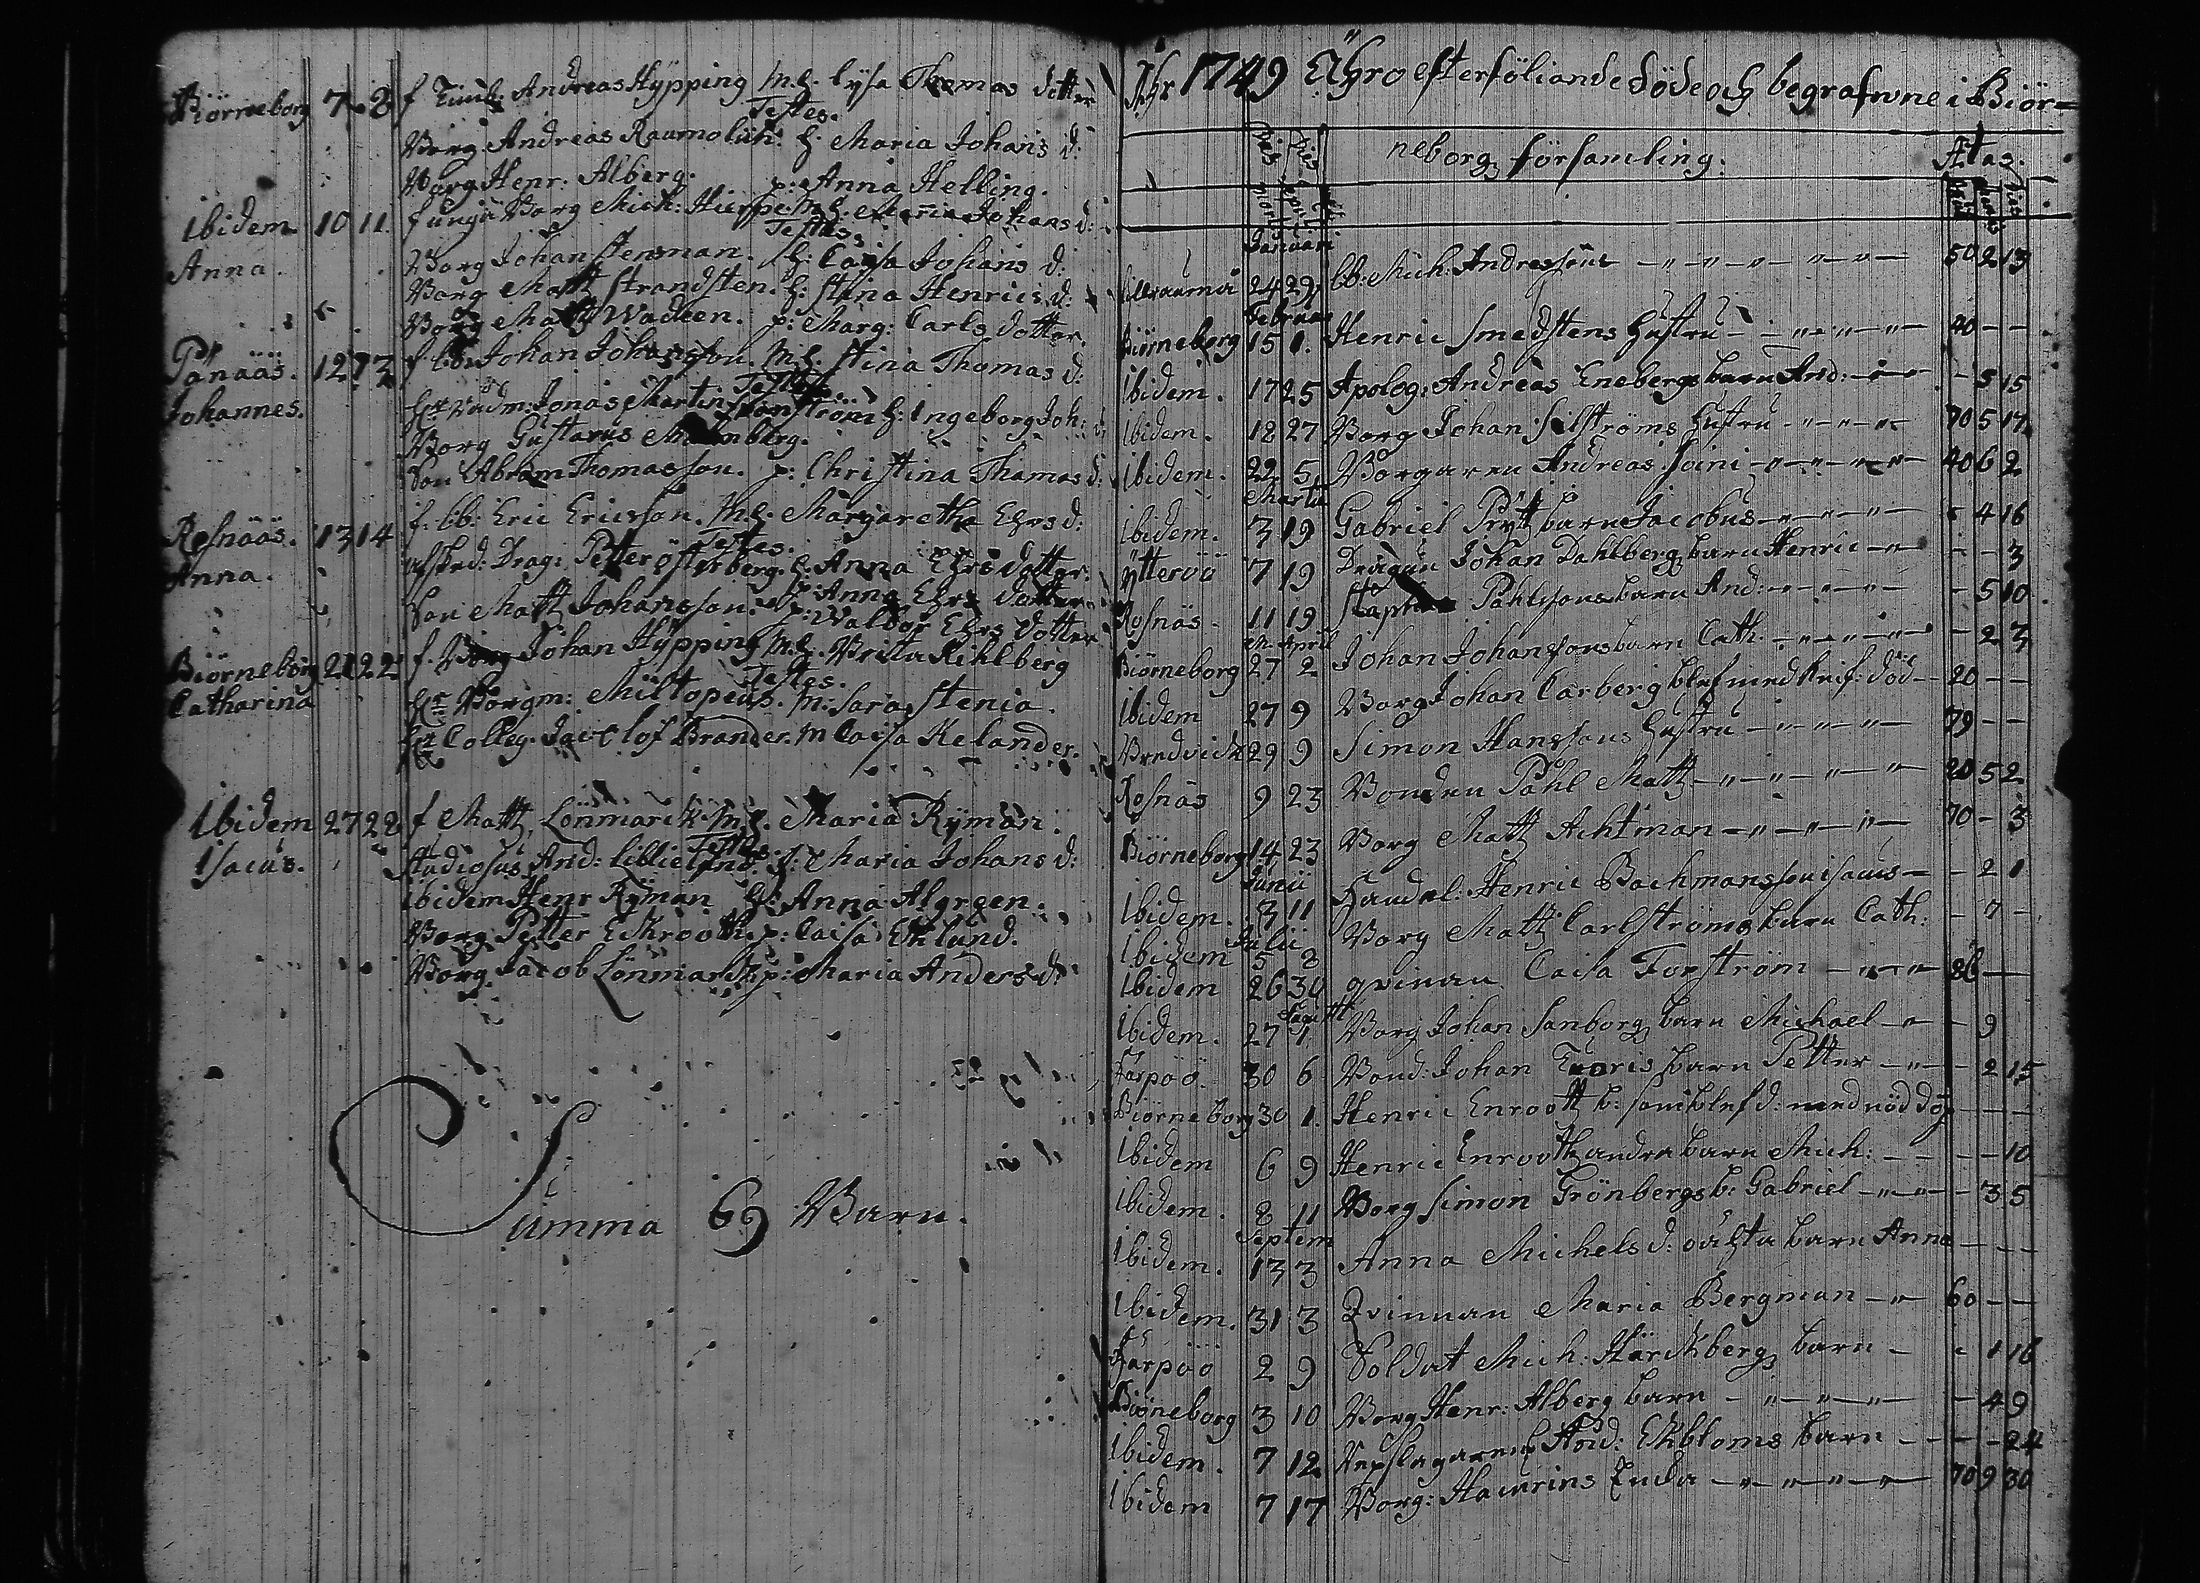 Biörneborg 7 8 f Timb: Andreas Hÿpping M. E. Lysa Thomas dotter
Testes.
Borg Andreas Raumolin: H. Maria Johans d:
Borg Henr: Alberg. p: Anna Helling.
Ibidem 10 11 f unga Borg Mich: Hierpe M. E. Maria Johans d:
Anna. Testes.
Borg Johan Stensman. H: Caisa Johans d:
Borg Matt Strandsten. H: Stina Henrics d:
Borg Matts Wadeen. p: Marg: Carls dotter.
Pänääs. 12 13 f. bb. Johan Johansson. M. E. Stina Thomas d:
Testes.
Johannes. Hr Rådm: Jonas Martin H: Ingeborg Joh: d:
Borg Gustavus Malmberg.
Son Abram Thomasson. p: Christina Thomas d:
Rosnääs. 13 14 f. bb: Eric Ericsson. M. E. Margaretha Ehrs d:
Testes.
Anna. afsked: Drag: Petter Österberg. H. Anna Ehrs dotter.
Son Matt Johansson. p: Anna Ehrs dotter
p: Walbor Ehrs dotter
Biörneborg 21 22 f. Borg Johan Hÿpping M. E. Brita Kihlberg
Testes.
Catharina Hr Borgm: Miltopeus. M: Sara Stenia.
Hr Colleg. Jac Olof Brander. M Caisa Kelander.
Ibidem 27 28 f Matt, Lönmarck M. E. Maria Rÿman.
Testes.
Isacus. Studiosus And: Lillielund. H: Maria Johans d:
ibidem Henr Rÿman H: Anna Algreen.
Borg Petter Eckrooth. p: Caisa Eklund.
Borg Jacob Lönmarck p: Maria Anders d:
Summa 69 Barn.
Åhr 1749 Ähro efterföliande döde och begrafwne i Biör=
neborg församling: Ætas.
Januari
Ulfraumå 24 29 bb: Mich: Andersson 50 2 13
Februar
Biörneborg 15 1. Henric Smedstens hustru 40
Ibidem. 17 25 Apolog: Andreas Enebergs barn And: 5 15
Ibidem. 18 27 Borg Johan Silströms hustru 70 5 17
Ibidem. 22 5 Borgaren Andreas Soini 40 6 2
Martii
Ibidem. 3 19 Gabriel Prytz barn Jacobus 4 16
Ÿtteröö 7 19 Dragun Johan Dahlberg barn Henric 3
Rosnäs. 11 19 Påhlsons barn And: 5 10
April
Biörneborg 27 2 Johan Johanssons barn Cath: 2 3
Ibidem 27 9 Borg Johan Carberg blef med knif: död 20
Bredvick 29 9 Simon Hanssons hustru 79
Rosnäs 9 23 Bonden Påhl Matt 20 5 2
Biörneborg 14 23 Borg Matt Achtman 70 3
Junii
Ibidem. 3 11 Handel: Henric Bachmans son Isacus 2 1
Julii
Ibidem 5 8 Borg Matt Carlströms barn Cath: 7
Ibidem 26 30 qvinan Caisa Forström 86
Ibidem. 27 1 Borg Johan Sanborg barn Michael 9
Järpöö. 30 6 Bond: Johan Tuoris barn Petter 2 15
Biörneborg 30 1. Henric Enrooth b: som blef d: med nöd döp
Ibidem 6 9 Henric Enrooth andra barn Mich: 10
Ibidem. 8 11 Borg Simon Grönbergs b: Gabriel 3 5
Septem
Ibidem. 13 3 Anna Michels d: oächta barn Anna
Ibidem. 31 3 Qvinnan Maria Bergman 60
Järpöö 2 9 Soldat Mich: Härckberg barn 1 16
Biöneborg 3 10 Borg Henr: Alberg barn 4 9
Ibidem. 7 12 Repslagaren And: Ekbloms barn 24
Ibidem 7 17 Borg: Haurins Enka 70 9 30